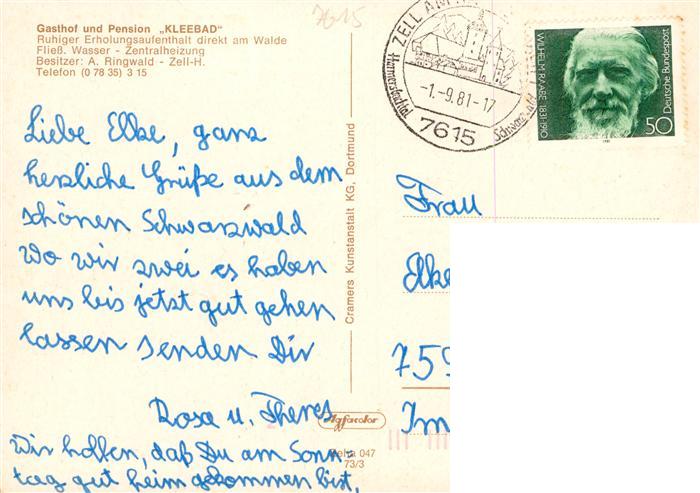 7615
Gasthof und Pension „KLEEBAD"
Ruhiger Erholungsaufenthalt direkt am Walde
Fließ. Wasser - Zentralheizung
Besitzer: A. Ringwald - Zell-H.
Telefon (0 78 35) 3 15
Liebe Elke, ganz
herzliche Grüße aus dem
schönen Schwarzwald
wo wir zwei es haben
uns bis jetzt gut gehen
lassen senden Dir
Rosa u. Theres
Wir hoffen, daß Du am Sonn=
tag gut heim gekommen bist.
Cramers Kunstanstalt KG, Dortmund
Agfacolor
047
73/3
ZELL AM
-1.-9.81-17
7615
WILHELM RAABE 1831-1910
Deutsche Bundespost
50
1981
Frau
Elke
759
Im